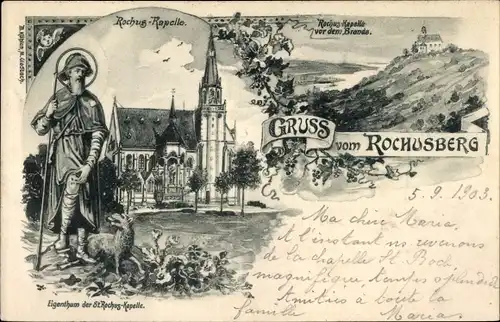 Rochus-Kapelle.
Rochus-Kapelle
vor dem Brande.
GRUSS
vom ROCHUSBERG
5. 9. 1903.
Ma chère Maria,
A l'instant nous revenons
de la chapelle St. Roch,
magnifique, temps splendid
Amitiés à toute la
famille Maria
Eigenthum der St. Rochus-Kapelle.